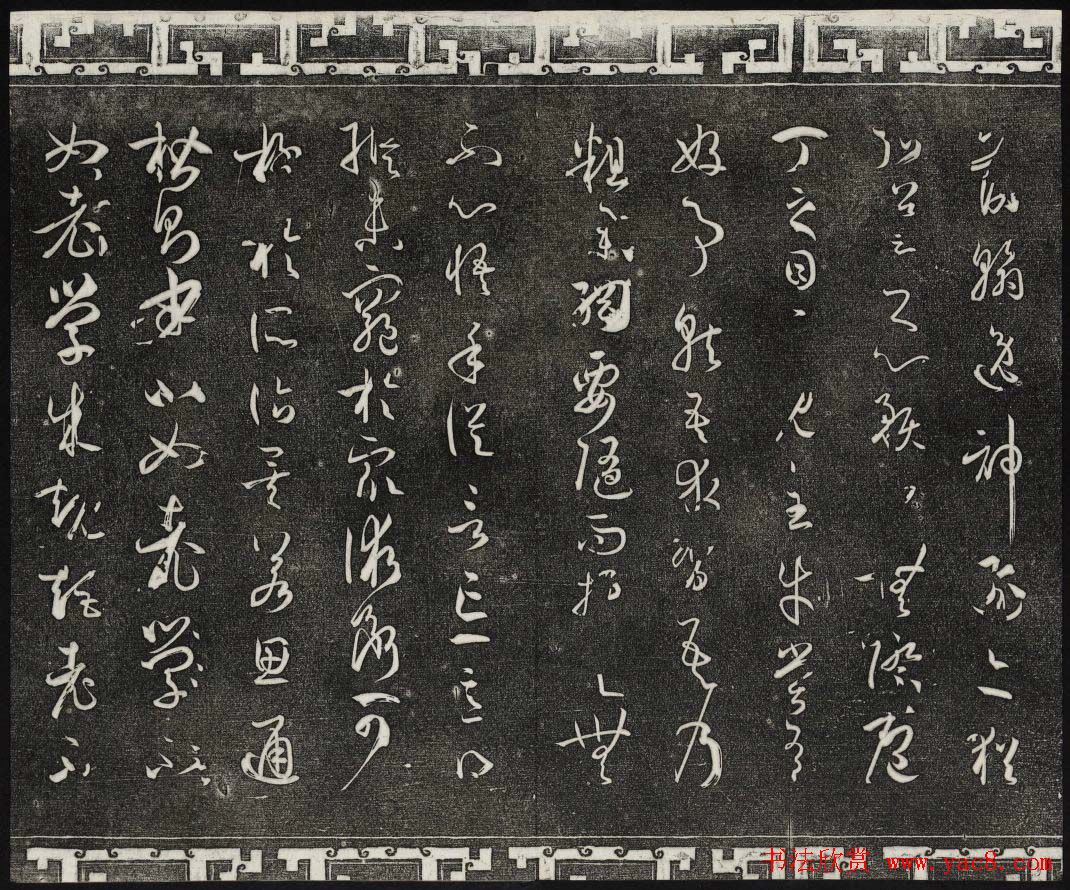 落翰逸神飛亦猶
弘羊之心預乎無際庖
丁之目不見全牛嘗有
好事就吾求習吾乃
粗舉綱要隨而授之無
不心悟手從言忘意得
縱未窮於眾術斷可
極於所詣矣若思通
楷則少如學
如老學成規矩老不
书法欣赏 www.yac8.com